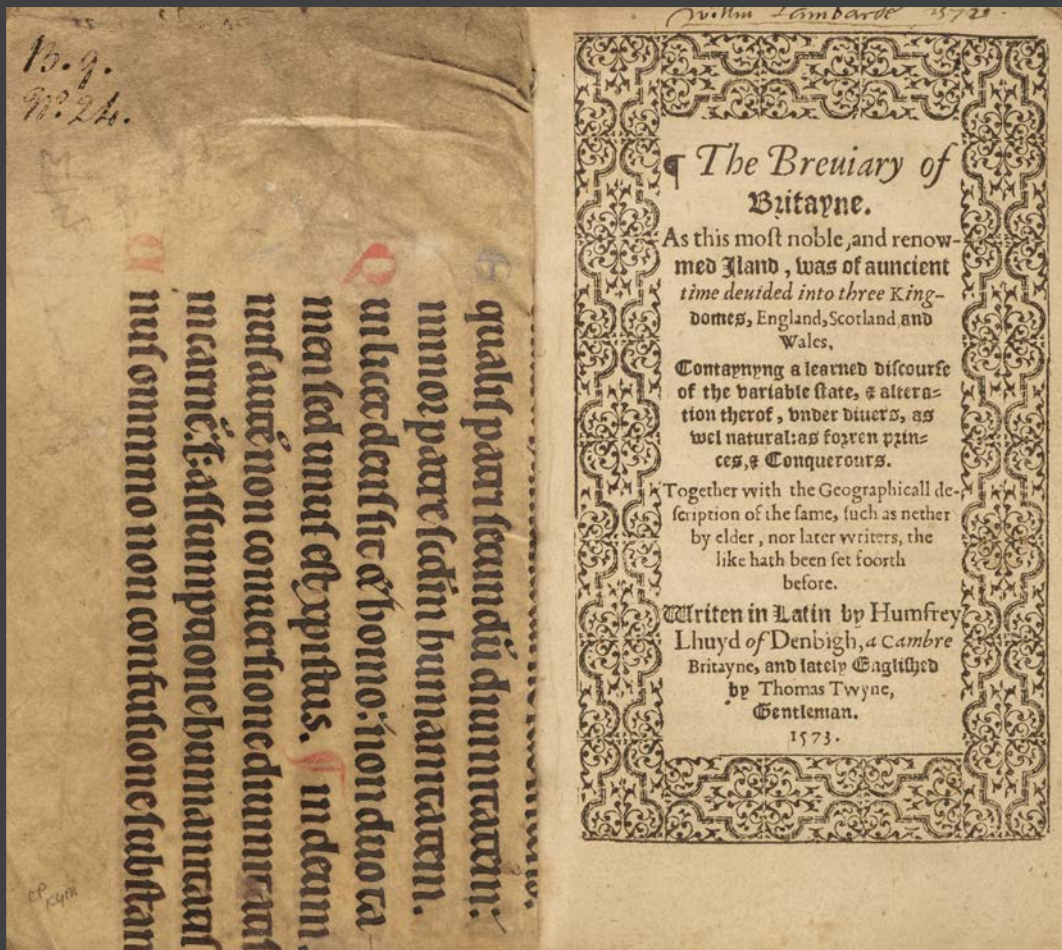 B. 9.
No. 24.
Equaliſ patri ſecundū diuinitatem:
minor patre ſcdm̄ humanitatem.
Qui licet deuſ ſit & homo: non duo ta
men ſed unuſ eſt xpiſtus. ¶ in deum.
nuſ autē non conuerſione diuinitat
in carnē. ſ; aſſumptione humanitatiſ
Unuſ omnino non confuſione ſubſtan
Willm Lambarde 1572
¶ The Breuiary of
Britayne.
As this moſt noble, and renow-
med Iland, was of auncient
time deuided into three King-
domes, England, Scotland and
Wales,
Contaynyng a learned diſcourſe
of the variable ſtate, & altera-
tion therof, vnder diuers, as
wel natural: as forren prin-
ces, & Conquerours.
Together with the Geographicall de-
ſcription of the ſame, ſuch as nether
by elder, nor later writers, the
like hath been ſet foorth
before.
Writen in Latin by Humfrey
Lhuyd of Denbigh, a Cambre
Britayne, and lately Engliſhed
by Thomas Twyne,
Gentleman.
1573.